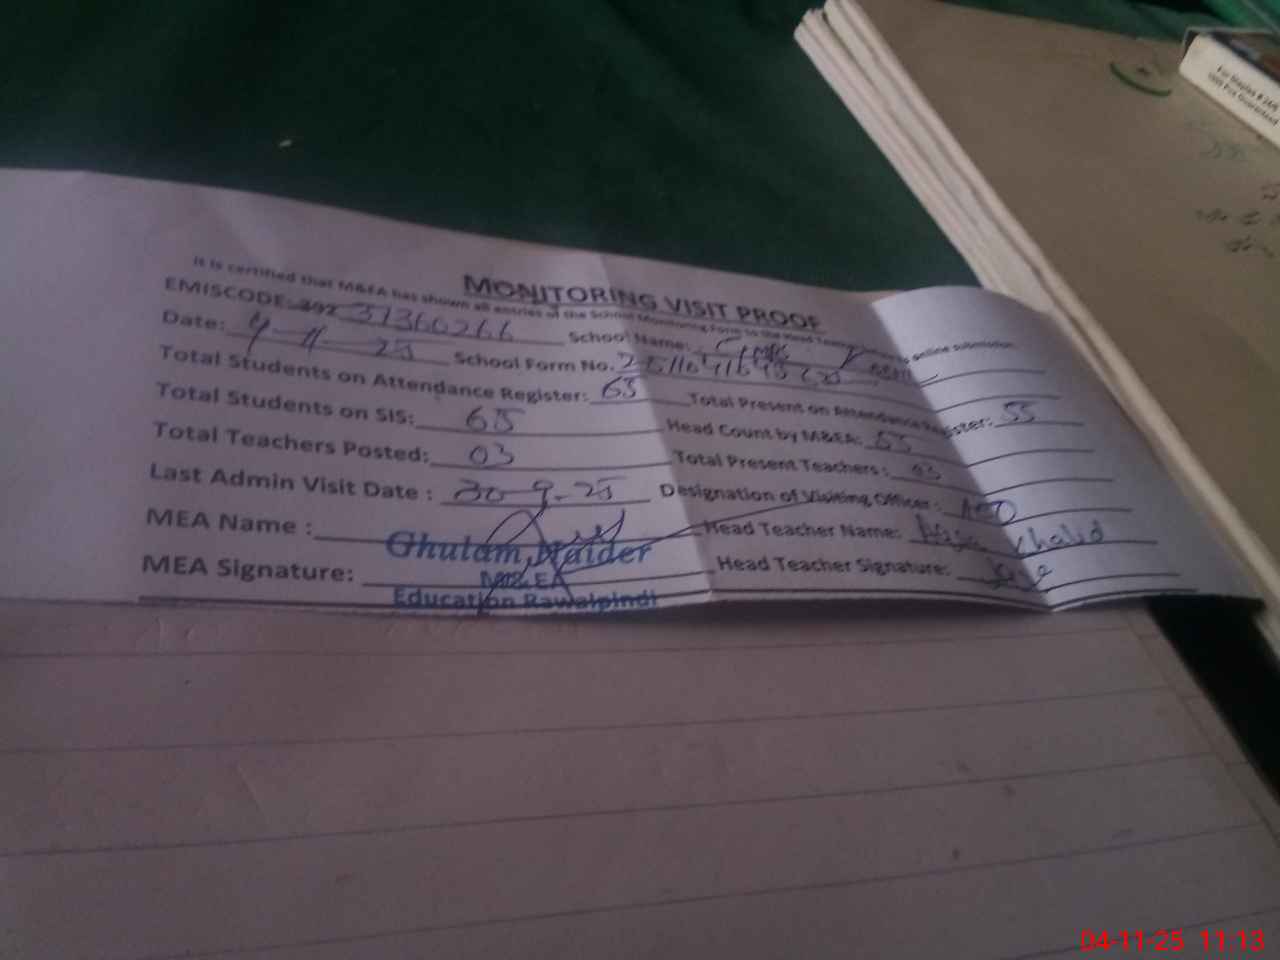 For Staples # 24/6
1000 Pcs Guaranteed
MONITORING VISIT PROOF
It is certified that M&EA has shown all entries of the School Monitoring Form to the Head Teacher online submission
EMISCODE: 37360266 School Name:
Date: 4-11-25 School Form No.
Total Students on Attendance Register: 65 Total Present on Attendance Register: 55
Total Students on SIS: 65 Head Count by M&EA: 55
Total Teachers Posted: 03 Total Present Teachers: 03
Last Admin Visit Date : 30-9-25 Designation of Visiting Officer: AEO
MEA Name : Ghulam Haider Head Teacher Name: Khalid
M&EA
MEA Signature: Head Teacher Signature:
Education Rawalpindi
04-11-25 11:13